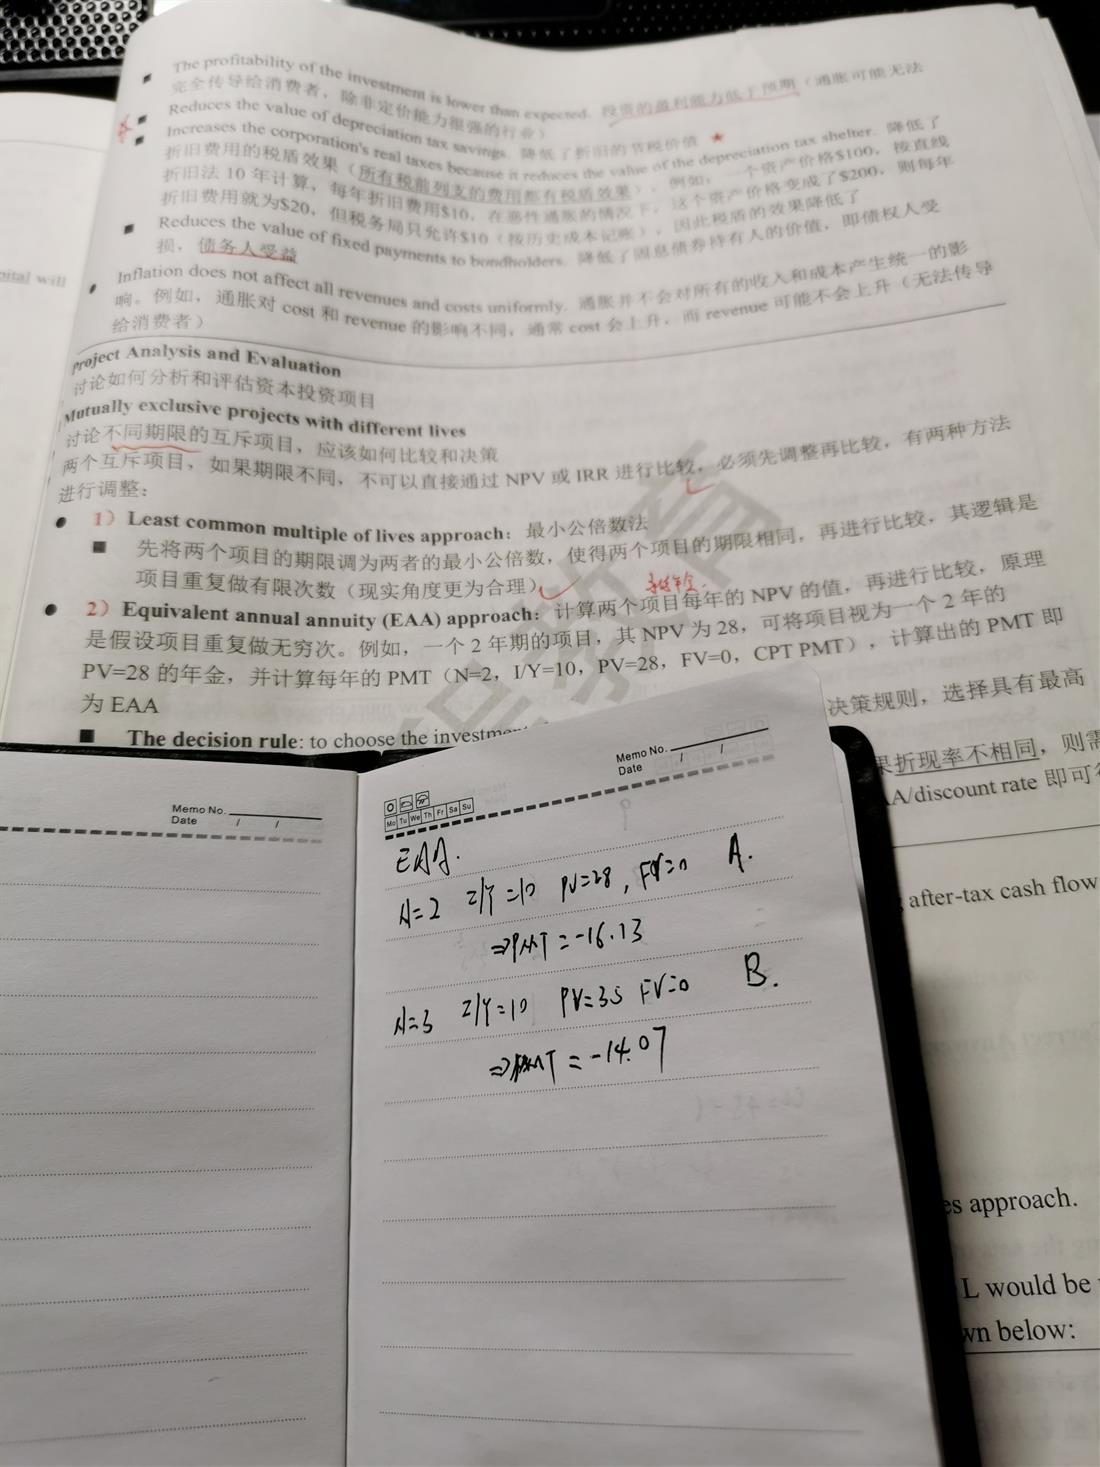 The profitability of the investment is lower than expected. 投资的盈利能力低于预期（通胀可能无法
完全传导给消费者，除非定价能力很强的行业）
Reduces the value of depreciation tax savings. 降低了折旧的节税价值 ★
Increases the corporation's real taxes because it reduces the value of the depreciation tax shelter. 降低了
折旧费用的税盾效果（所有税前列支的费用都有税盾效果），例如，一个资产价格$100，按直线
折旧法 10 年计算，每年折旧费用$10，在恶性通胀的情况下，这个资产价格变成了$200，则每年
折旧费用就为$20，但税务局只允许$10（按历史成本记账），因此税盾的效果降低了
Reduces the value of fixed payments to bondholders. 降低了固息债券持有人的价值，即债权人受
损，债务人受益
Inflation does not affect all revenues and costs uniformly. 通胀并不会对所有的收入和成本产生统一的影
响。例如，通胀对 cost 和 revenue 的影响不同，通常 cost 会上升，而 revenue 可能不会上升（无法传导
给消费者）
pital will
Project Analysis and Evaluation
讨论如何分析和评估资本投资项目
Mutually exclusive projects with different lives
讨论不同期限的互斥项目，应该如何比较和决策
两个互斥项目，如果期限不同，不可以直接通过 NPV 或 IRR 进行比较，必须先调整再比较，有两种方法
进行调整：
1）Least common multiple of lives approach：最小公倍数法
先将两个项目的期限调为两者的最小公倍数，使得两个项目的期限相同，再进行比较，其逻辑是
项目重复做有限次数（现实角度更为合理）
永续年金
2）Equivalent annual annuity (EAA) approach：计算两个项目每年的 NPV 的值，再进行比较，原理
是假设项目重复做无穷次。例如，一个 2 年期的项目，其 NPV 为 28，可将项目视为一个 2 年的
PV=28 的年金，并计算每年的 PMT（N=2，I/Y=10，PV=28，FV=0，CPT PMT），计算出的 PMT 即
为 EAA
The decision rule: to choose the investmen
决策规则，选择具有最高
果折现率不相同，则需
AA/discount rate 即可
after-tax cash flow
es approach.
L would be
wn below:
Memo No.
Date / /
Memo No.
Date / /
Mo Tu We Th Fr Sa Su
EAA.
N=2 I/Y=10 PV=28, FV=0 A.
⇒PMT=-16.13
N=3 I/Y=10 PV=35 FV=0 B.
⇒PMT=-14.07